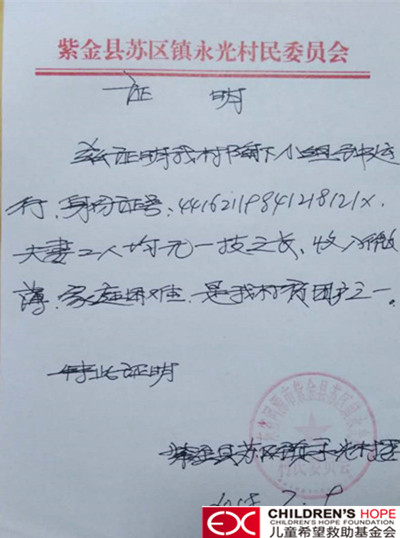 紫金县苏区镇永光村民委员会
证 明
兹证明我村下小组钟
行,身份证号:44162119841218121X.
夫妻二人均无一技之长,收入微
薄,家庭困难,是我村贫困户之一.
特此证明
紫金县苏区镇永光村委
7.9
CHILDREN'S HOPE
CHILDREN'S HOPE FOUNDATION
儿童希望救助基金会